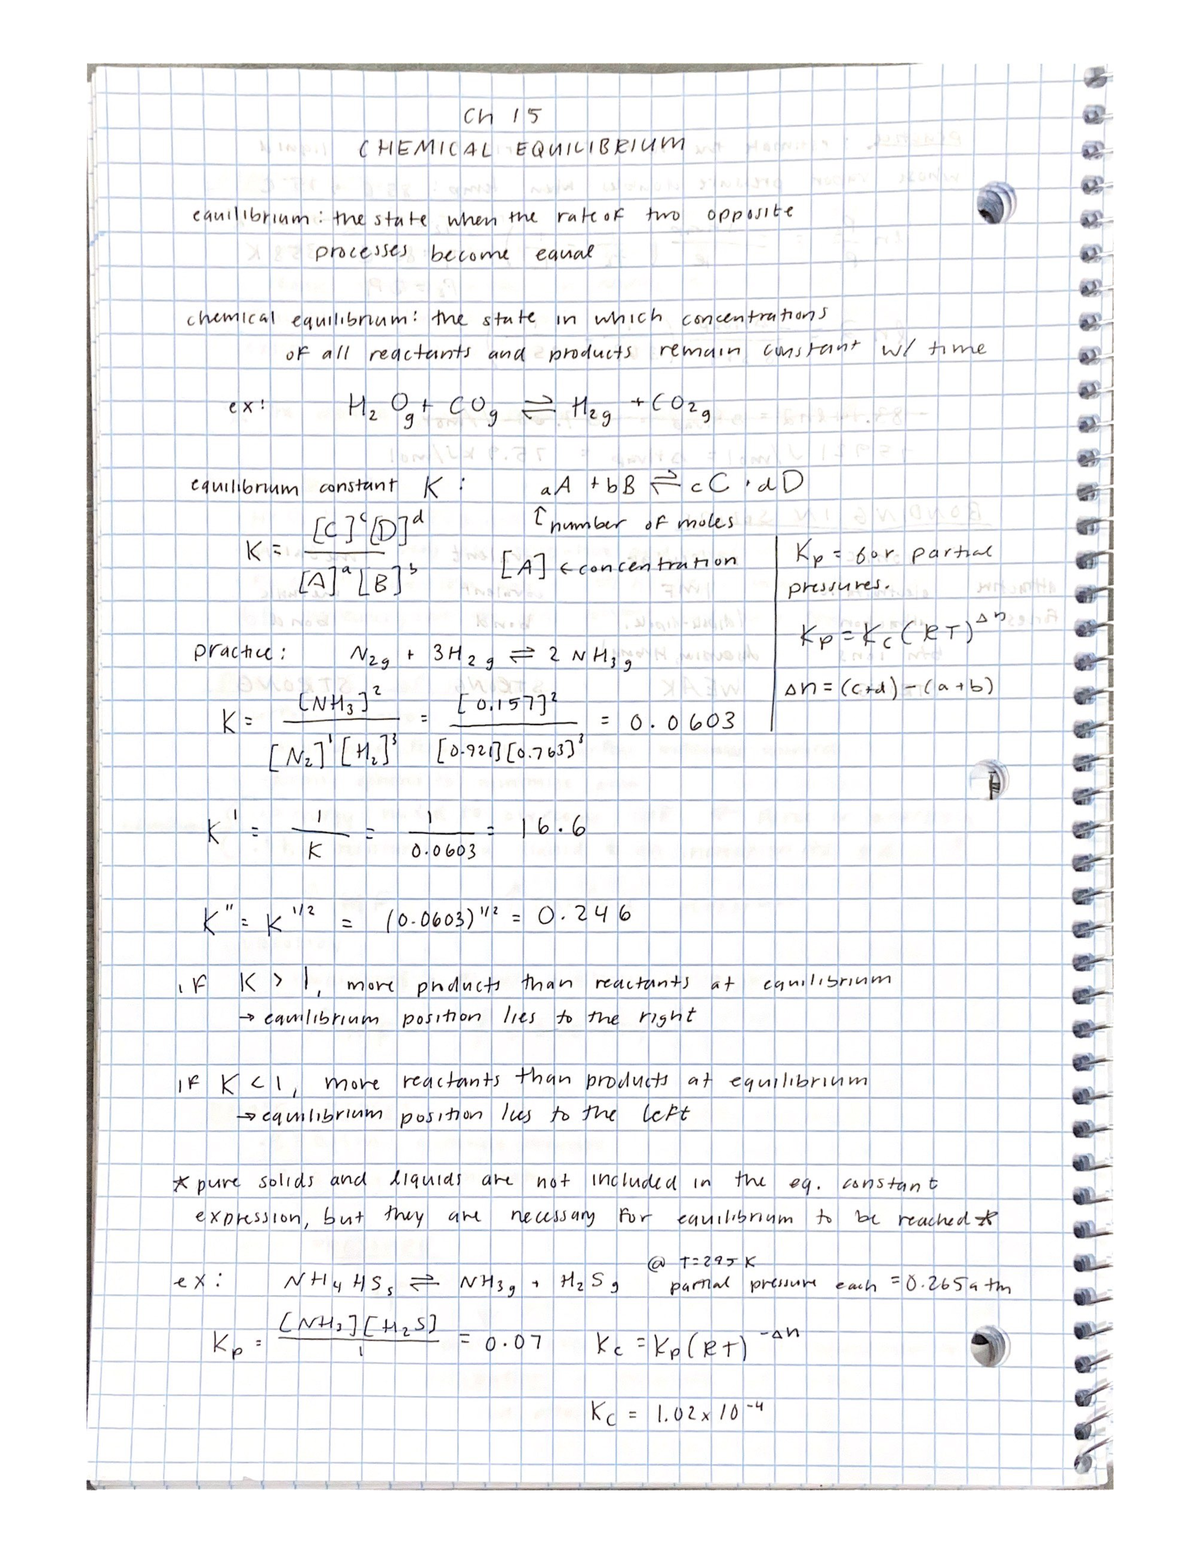 Ch 15
CHEMICAL EQUILIBRIUM
equilibrium: the state when the rate of two opposite
processes become equal
chemical equilibrium: the state in which concentrations
of all reactants and products remain constant w/ time
ex: H₂Og + COg ⇌ H₂g + CO₂g
equilibrium constant K: aA + bB ⇌ cC · dD
↑ number of moles
K = [C]ᶜ[D]ᵈ / [A]ᵃ[B]ᵇ
[A] ← concentration
Kp = for partial
pressures.
Kp = Kc(RT)^Δn
Δn = (c+d) - (a+b)
practice: N₂g + 3H₂g ⇌ 2 NH₃g
K = [NH₃]² / [N₂]¹[H₂]³ = [0.157]² / [0.921][0.763]³ = 0.0603
K' = 1/K = 1/0.0603 = 16.6
K" = K^1/2 = (0.0603)^1/2 = 0.246
if K > 1, more products than reactants at equilibrium
→ equilibrium position lies to the right
if K < 1, more reactants than products at equilibrium
→ equilibrium position lies to the left
* pure solids and liquids are not included in the eq. constant
expression, but they are necessary for equilibrium to be reached *
@ T=295 K
ex: NH₄HSs ⇌ NH₃g + H₂Sg partial pressure each = 0.265 atm
Kp = [NH₃][H₂S] / 1 = 0.07 Kc = Kp(RT)^-Δn
Kc = 1.02 x 10⁻⁴